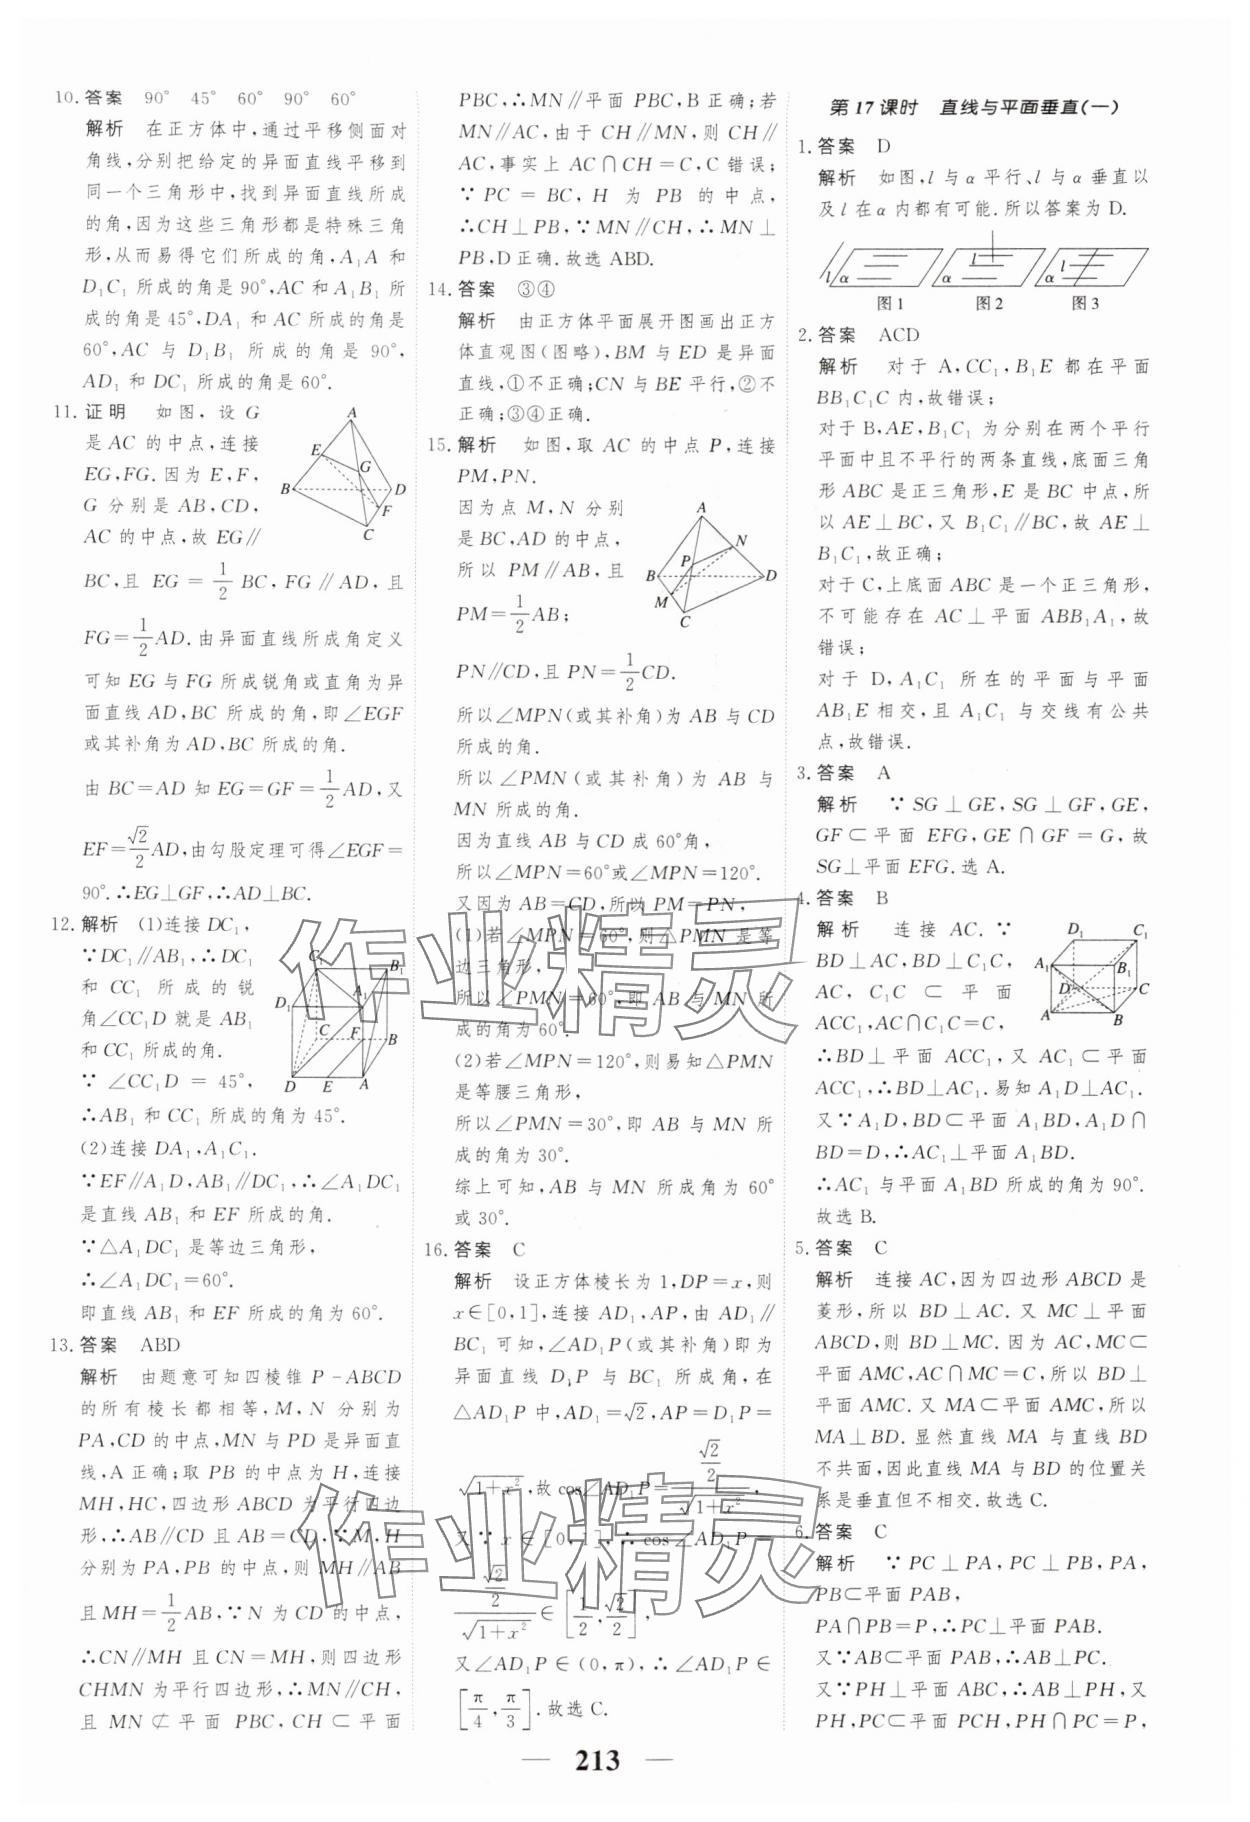 10. 答案　90°　45°　60°　90°　60°
解析　在正方体中,通过平移侧面对
角线,分别把给定的异面直线平移到
同一个三角形中,找到异面直线所成
的角,因为这些三角形都是特殊三角
形,从而易得它们所成的角,A₁A 和
D₁C₁ 所成的角是90°,AC和A₁B₁ 所
成的角是45°,DA₁ 和 AC 所成的角是
60°,AC 与 D₁B₁ 所成的角是 90°,
AD₁ 和 DC₁ 所成的角是 60°.
11. 证明　如图,设 G
是 AC 的中点,连接
EG,FG.因为 E,F,
G 分别是 AB,CD,
AC 的中点,故 EG∥
BC,且 EG = 1/2 BC,FG∥AD,且
FG=1/2AD.由异面直线所成角定义
可知 EG 与 FG 所成锐角或直角为异
面直线AD,BC 所成的角,即∠EGF
或其补角为AD,BC 所成的角.
由 BC=AD 知 EG=GF=1/2AD,又
EF=√2/2AD,由勾股定理可得∠EGF=
90°.∴EG⊥GF,∴AD⊥BC.
A
E
G
B
D
F
C
12. 解析　(1)连接 DC₁,
∵DC₁∥AB₁,∴DC₁
和 CC₁ 所成的锐
角∠CC₁D 就是 AB₁
和 CC₁ 所成的角.
∵ ∠CC₁D = 45°,
∴AB₁ 和 CC₁ 所成的角为 45°.
(2)连接 DA₁,A₁C₁.
∵EF∥A₁D,AB₁∥DC₁,∴∠A₁DC₁
是直线 AB₁ 和 EF 所成的角.
∵△A₁DC₁ 是等边三角形,
∴∠A₁DC₁=60°.
即直线 AB₁ 和 EF 所成的角为 60°.
C₁
B₁
D₁
A₁
C
F
B
D
E
A
13. 答案　ABD
解析　由题意可知四棱锥 P-ABCD
的所有棱长都相等,M,N 分别为
PA,CD的中点,MN与PD是异面直
线,A正确;取 PB的中点为 H,连接
MH,HC,四边形 ABCD 为平行四边
形,∴AB∥CD 且 AB=CD,∵M,H
分别为PA,PB的中点,则 MH∥AB
且MH=1/2AB,∵N 为 CD 的中点,
∴CN∥MH 且 CN=MH,则四边形
CHMN 为平行四边形,∴MN∥CH,
且 MN⊄平面 PBC,CH⊂平面
PBC,∴MN∥平面 PBC,B 正确;若
MN∥AC,由于 CH∥MN,则 CH∥
AC,事实上 AC∩CH=C,C 错误;
∵ PC = BC, H 为 PB 的中点,
∴CH⊥PB,∵MN∥CH,∴MN⊥
PB,D正确.故选 ABD.
14. 答案　③④
解析　由正方体平面展开图画出正方
体直观图(图略),BM 与 ED 是异面
直线,①不正确;CN 与 BE 平行,②不
正确;③④正确.
15. 解析　如图,取 AC 的中点 P,连接
PM,PN.
因为点 M,N 分别
是 BC,AD 的中点,
所以 PM∥AB,且
PM=1/2AB;
PN∥CD,且 PN=1/2CD.
A
N
P
B
D
M
C
所以∠MPN(或其补角)为 AB 与 CD
所成的角.
所以∠PMN(或其补角)为 AB 与
MN 所成的角.
因为直线 AB 与 CD 成 60°角,
所以∠MPN=60°或∠MPN=120°.
又因为 AB=CD,所以 PM=PN,
(1)若∠MPN=60°,则△PMN 是等
边三角形,
所以∠PMN=60°,即 AB 与 MN 所
成的角为 60°.
(2)若∠MPN=120°,则易知△PMN
是等腰三角形,
所以∠PMN=30°,即 AB 与 MN 所
成的角为 30°.
综上可知,AB 与 MN 所成角为 60°
或 30°.
16. 答案　C
解析　设正方体棱长为 1,DP=x,则
x∈[0,1],连接 AD₁,AP,由 AD₁∥
BC₁ 可知,∠AD₁P(或其补角)即为
异面直线 D₁P 与 BC₁ 所成角,在
△AD₁P 中,AD₁=√2,AP=D₁P=
√(1+x²),故 cos∠AD₁P=(√2/2)/√(1+x²),
又∵ x∈[0,1],∴ cos∠AD₁P =
(√2/2)/√(1+x²)∈[1/2,√2/2],
又∠AD₁P∈(0,π),∴∠AD₁P∈
[π/4,π/3].故选 C.
第 17 课时　直线与平面垂直(一)
1. 答案　D
解析　如图,l 与 α 平行、l 与 α 垂直以
及 l 在 α 内都有可能.所以答案为 D.
l α　l α　α
图 1　图 2　图 3
2. 答案　ACD
解析　对于 A,CC₁,B₁E 都在平面
BB₁C₁C 内,故错误;
对于B,AE,B₁C₁ 为分别在两个平行
平面中且不平行的两条直线,底面三角
形 ABC 是正三角形,E 是 BC 中点,所
以 AE⊥BC,又 B₁C₁∥BC,故 AE⊥
B₁C₁,故正确;
对于 C,上底面 ABC 是一个正三角形,
不可能存在 AC⊥平面 ABB₁A₁,故
错误;
对于 D,A₁C₁ 所在的平面与平面
AB₁E 相交,且 A₁C₁ 与交线有公共
点,故错误.
3. 答案　A
解析　∵ SG⊥GE,SG⊥GF,GE,
GF⊂平面 EFG,GE∩GF=G,故
SG⊥平面 EFG.选 A.
4. 答案　B
解析　连接 AC.∵
BD⊥AC,BD⊥C₁C,
AC, C₁C ⊂ 平面
ACC₁,AC∩C₁C=C,
∴BD⊥平面 ACC₁,又 AC₁⊂平面
ACC₁,∴BD⊥AC₁.易知 A₁D⊥AC₁.
又∵A₁D,BD⊂平面 A₁BD,A₁D∩
BD=D,∴AC₁⊥平面 A₁BD.
∴AC₁ 与平面 A₁BD 所成的角为 90°.
故选 B.
D₁
C₁
A₁
B₁
D
C
A
B
5. 答案　C
解析　连接 AC,因为四边形 ABCD 是
菱形,所以 BD⊥AC.又 MC⊥平面
ABCD,则 BD⊥MC.因为 AC,MC⊂
平面 AMC,AC∩MC=C,所以 BD⊥
平面 AMC.又 MA⊂平面 AMC,所以
MA⊥BD.显然直线 MA 与直线 BD
不共面,因此直线 MA 与 BD 的位置关
系是垂直但不相交.故选 C.
6. 答案　C
解析　∵ PC⊥PA,PC⊥PB,PA,
PB⊂平面 PAB,
PA∩PB=P,∴PC⊥平面 PAB.
又∵AB⊂平面 PAB,∴AB⊥PC.
又∵PH⊥平面 ABC,∴AB⊥PH,又
PH,PC⊂平面 PCH,PH∩PC=P,
作业精灵
作业精灵
— 213 —